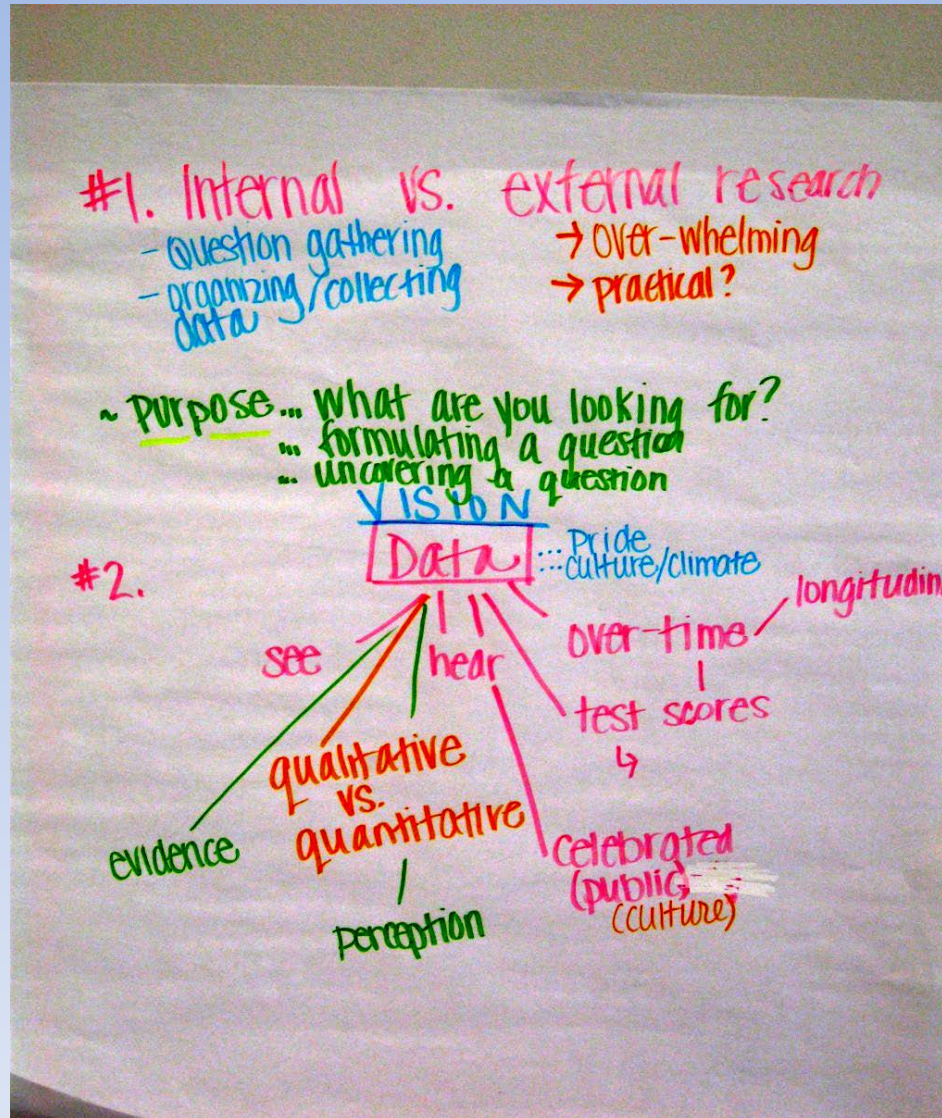 #1. Internal vs. external research
- Question gathering
- organizing/collecting
data
→ over-whelming
→ practical?
~ Purpose... What are you looking for?
... formulating a question
... uncovering a question
VISION
Data
... Pride
... culture/climate
#2.
longitudin
see
hear
over-time
test scores
↳
qualitative
vs.
quantitative
evidence
perception
celebrated
(public)
(culture)